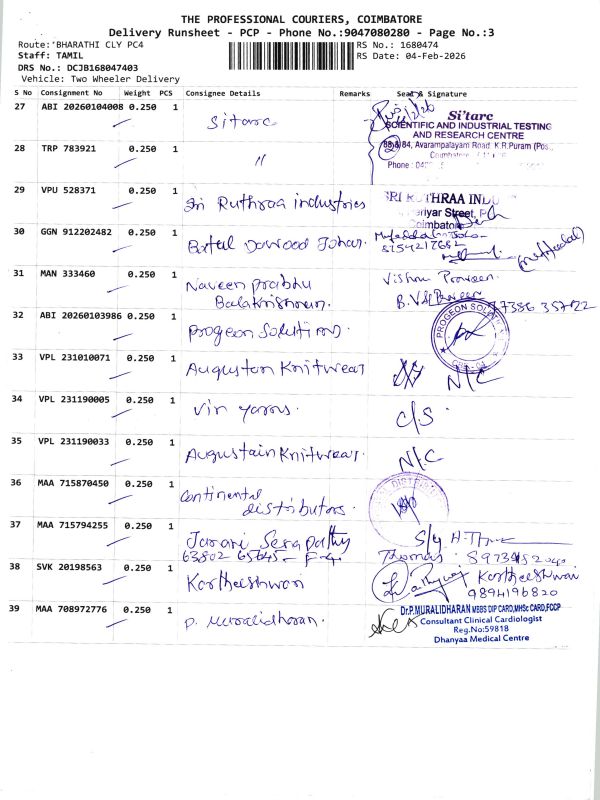 THE PROFESSIONAL COURIERS, COIMBATORE
Delivery Runsheet - PCP - Phone No.:9047080280 - Page No.:3
Route:'BHARATHI CLY PC4
RS No.: 1680474
Staff: TAMIL
RS Date: 04-Feb-2026
DRS No.: DCJB168047403
Vehicle: Two Wheeler Delivery
S No Consignment No Weight PCS Consignee Details Remarks Seal & Signature
27 ABI 20260104008 0.250 1 Sitarc
Si'tarc
SCIENTIFIC AND INDUSTRIAL TESTING
AND RESEARCH CENTRE
83 & 84, Avarampalayam Road. K.R.Puram (Pos..
Coimbatore
Phone :
28 TRP 783921 0.250 1 "
29 VPU 528371 0.250 1 Sri Ruthraa industries
SRI RUTHRAA INDU
eriyar Street, P
Coimbatore
30 GGN 912202482 0.250 1 Batul Dawood Johar.
31 MAN 333460 0.250 1 Naveen prabhu
Balakrishnan.
Vishnu Praveen.
32 ABI 20260103986 0.250 1 progeon solutions.
PROGEON SOLUTI
33 VPL 231010071 0.250 1 Augustan Knitwear
N/C
34 VPL 231190005 0.250 1 Vin yarns.
C/S.
35 VPL 231190033 0.250 1 Augustain Knitwear.
N/C
36 MAA 715870450 0.250 1 Continental
distributors.
DISTRI
37 MAA 715794255 0.250 1
Thomas.
38 SVK 20198563 0.250 1 Kartheeshwan
Kartheeshwar
9894196820
39 MAA 708972776 0.250 1 P. Muralidharan.
Dr.P.MURALIDHARAN MBBS DIP CARD,MHSc CARD,FCCP
Consultant Clinical Cardiologist
Reg.No:59818
Dhanyaa Medical Centre